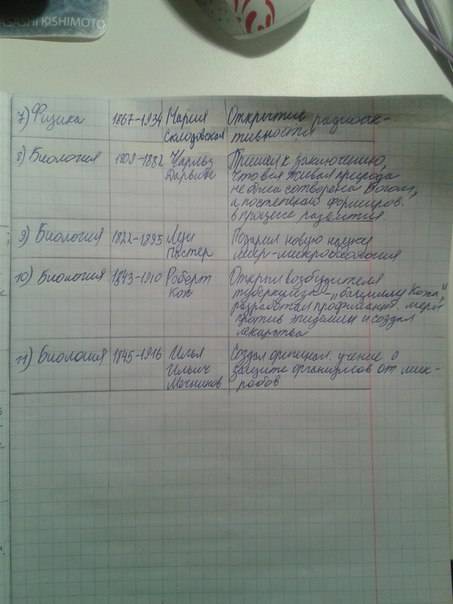 KISHIMOTO
7) Физика 1867-1934 Мария Открытие радиоак-
Склодовская тивности
8) Биология 1809-1882 Чарльз Пришел к заключению,
Дарвин что вся живая природа
не была сотворена Богом,
а постепенно формиров.
в процессе развития
9) Биология 1822-1895 Луи Подарил новую науку
Пастер миру-микробиология
10) Биология 1843-1910 Роберт Открыл возбудителя
Кох туберкулёза-"бациллу Коха",
разработал профилакт. меры
против эпидемии и создал
лекарства
11) Биология 1845-1916 Илья Создал оригинал. учение о
Ильич защите организмов от мик-
Мечников робов